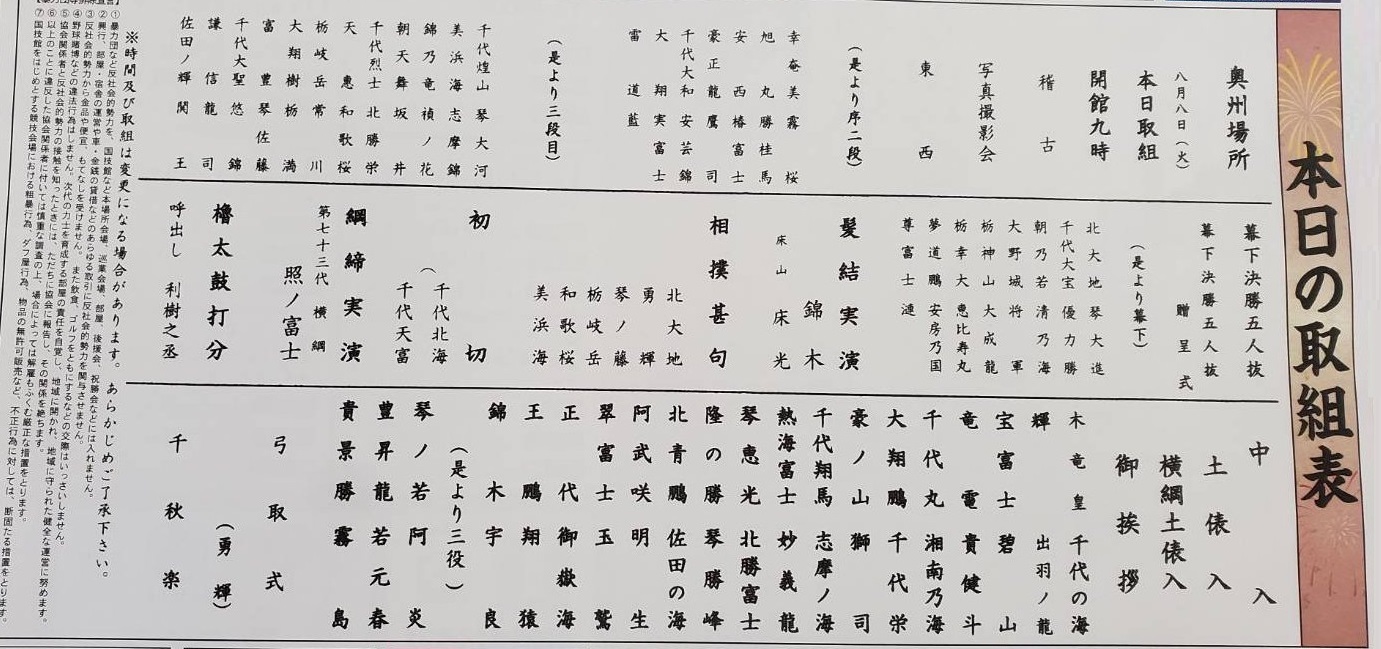 本日の取組表
奥州場所
八月八日(火)
本日取組
開館九時
稽古
写真撮影会
東西
(是より序二段)
幸奄美霧桜
旭丸勝桂馬
安西椿富士
豪正龍鷹司
千代大和安芸錦
大翔実富士
雷道藍
(是より三段目)
千代煌山琴大河
美浜海志摩錦
錦乃竜禎ノ花
朝天舞坂井
千代烈士北勝栄
天惠和歌桜
栃岐岳常川
大翔樹栃満
富豊琴佐藤
千代大聖悠錦
謙信龍司
佐田ノ輝関王
幕下決勝五人抜
幕下決勝五人抜
贈呈式
(是より幕下)
北大地琴大進
千代大宝優力勝
朝乃若清乃海
大野城将軍
栃神山大成龍
栃幸大恵比寿丸
夢道鵬安房乃国
尊富士漣
髪結実演
錦木
床山床光
相撲甚句
北大地
勇輝
琴ノ藤
栃岐岳
和歌桜
美浜海
初切
(千代北海
千代天富
綱締実演
第七十三代横綱
照ノ富士
櫓太鼓打分
呼出し利樹之丞
中入
土俵入
横綱土俵入
御挨拶
木竜皇千代の海
輝出羽ノ龍
宝富士碧山
竜電貴健斗
千代丸湘南乃海
大翔鵬千代栄
豪ノ山獅司
千代翔馬志摩ノ海
熱海富士妙義龍
琴恵光北勝富士
隆の勝琴勝峰
北青鵬佐田の海
阿武咲明生
翠富士玉鷲
正代御嶽海
王鵬翔猿
錦木宇良
(是より三役)
琴ノ若阿炎
豊昇龍若元春
貴景勝霧島
弓取式
(勇輝)
千秋楽
※時間及び取組は変更になる場合があります。あらかじめご了承下さい。
①暴力団など反社会的勢力を、国技館など本場所会場、巡業会場、部屋、後援会、祝勝会などには入れません。
②興行、部屋・宿舎の運営や車・金銭の貸借などのあらゆる取引に反社会的勢力を関与させません。
③反社会的勢力から金品や便宜、もてなしを受けません。また飲食、ゴルフをともにするなどの交際はいっさいしません。
④野球賭博などの違法行為はしません。次代の力士を育成する部屋の責任を自覚し、地域に開かれ、地域に守られた健全な運営に努めます。
⑤協会関係者と反社会的勢力の接触を知ったときには、ただちに協会に報告し、その関係を絶ちます。
⑥以上のことに違反した協会関係者に付いては慎重な調査の上、場合によっては解雇もふくむ厳正な措置をとります。
⑦国技館をはじめとする競技会場における粗暴行為、ダフ屋行為、物品の無許可販売など、不正行為に対しては、断固たる措置をとります。